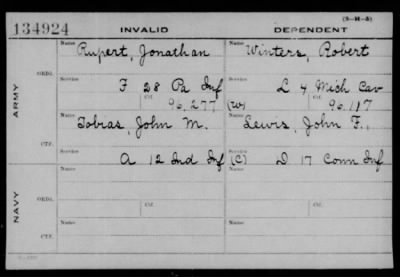 (3-M-5)
134924 INVALID DEPENDENT
Name Rupert, Jonathan Name Winters, Robert
ARMY
ORIG.
Service F 28 Pa Inf Service L 4 Mich Cav
Ctf. 96,277 (W) Ctf. 96,117
Name Tobias, John M. Name Lewis, John F.,
CTF.
Service A 12 Ind Inf (C) Service D 17 Conn Inf
NAVY
Name Name
ORIG.
Ctf. Ctf.
Name Name
CTF.